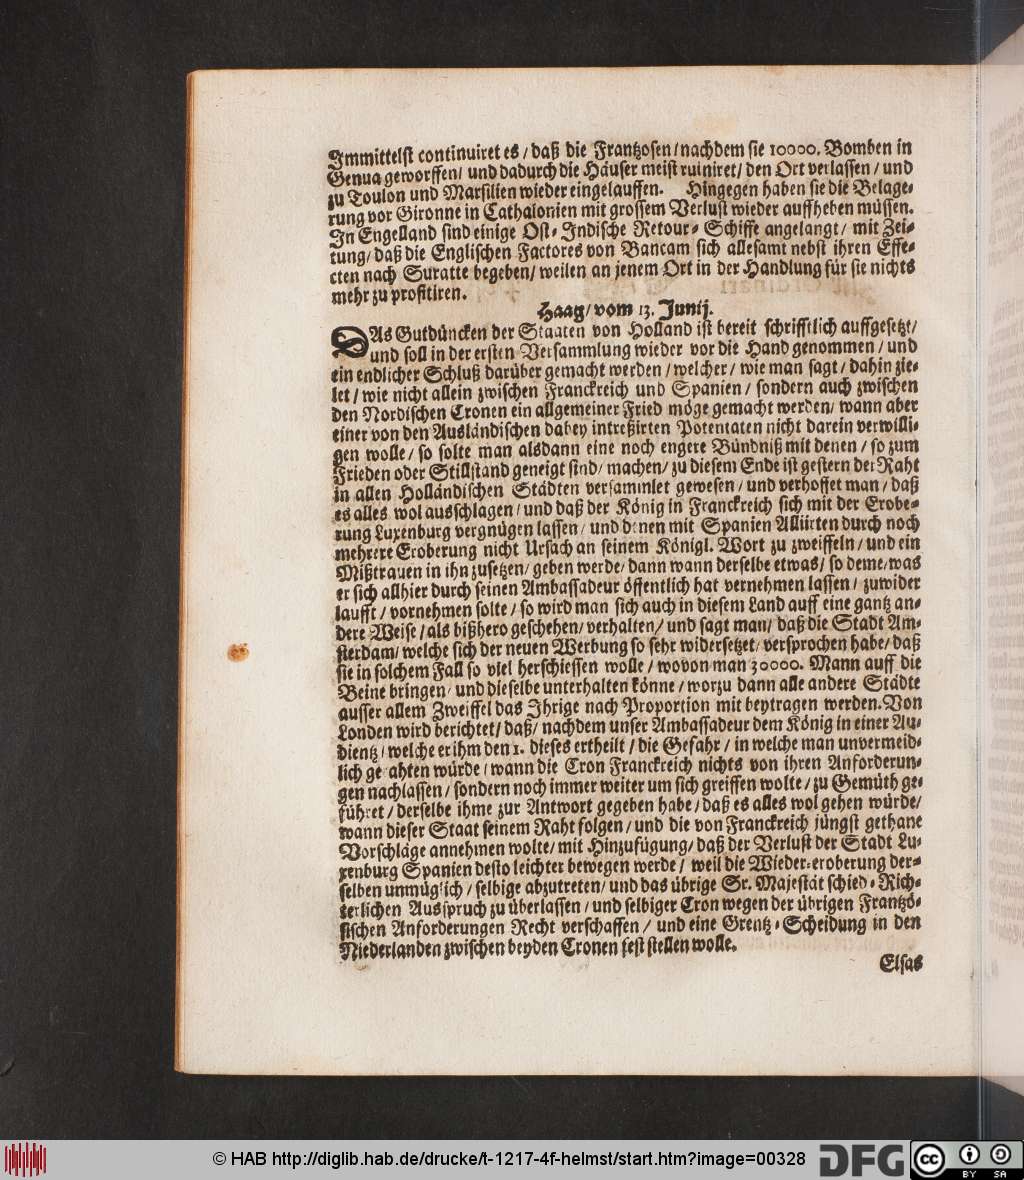 Immittelst continuiret es / daß die Frantzosen / nachdem sie 10000. Bomben in
Genua geworffen / und dadurch die Häuser meist ruiniret / den Ort verlassen / und
zu Toulon und Marsilien wieder eingelauffen. Hingegen haben sie die Belage-
rung vor Gironne in Cathalonien mit grossem Verlust wieder auffheben müssen.
In Engelland sind einige Ost- Indische Retour- Schiffe angelangt / mit Zei-
tung / daß die Englischen Factores von Bancam sich allesamt nebst ihren Effe-
cten nach Suratte begeben / weilen an jenem Ort in der Handlung für sie nichts
mehr zu profitiren.
Haag / vom 13. Junij.
DAs Gutdüncken der Staaten von Holland ist bereit schrifftlich auffgesetzt /
und soll in der ersten Versammlung wieder vor die Hand genommen / und
ein endlicher Schluß darüber gemacht werden / welcher / wie man sagt / dahin zie-
let / wie nicht allein zwischen Franckreich und Spanien / sondern auch zwischen
den Nordischen Cronen ein allgemeiner Fried möge gemacht werden / wann aber
einer von den Ausländischen dabey intreßirten Potentaten nicht darein verwilli-
gen wolle / so solte man alsdann eine noch engere Bündniß mit denen / so zum
Frieden oder Stillstand geneigt sind / machen / zu diesem Ende ist gestern der Raht
in allen Holländischen Städten versammlet gewesen / und verhoffet man / daß
es alles wol ausschlagen / und daß der König in Franckreich sich mit der Erobe-
rung Luxenburg vergnügen lassen / und denen mit Spanien Alliirten durch noch
mehrere Eroberung nicht Ursach an seinem Königl. Wort zu zweiffeln / und ein
Mißtrauen in ihn zusetzen / geben werde / dann wann derselbe etwas / so deme / was
er sich allhier durch seinen Ambassadeur öffentlich hat vernehmen lassen / zuwider
laufft / vornehmen solte / so wird man sich auch in diesem Land auff eine gantz an-
dere Weise / als bißhero geschehen / verhalten / und sagt man / daß die Stadt Am-
sterdam / welche sich der neuen Werbung so sehr widersetzet / versprochen habe / daß
sie in solchem Fall so viel herschiessen wolle / wovon man 30000. Mann auff die
Beine bringen / und dieselbe unterhalten könne / worzu dann alle andere Städte
ausser allem Zweiffel das Ihrige nach Proportion mit beytragen werden. Von
Londen wird berichtet / daß / nachdem unser Ambassadeur dem König in einer Au-
dientz / welche er ihm den 1. dieses ertheilt / die Gefahr / in welche man unvermeid-
lich gerahten würde / wann die Cron Franckreich nichts von ihren Anforderun-
gen nachlassen / sondern noch immer weiter um sich greiffen wolte / zu Gemüth ge-
führet / derselbe ihme zur Antwort gegeben habe / daß es alles wol gehen würde /
wann dieser Staat seinem Raht folgen / und die von Franckreich jüngst gethane
Vorschläge annehmen wolte / mit Hinzufügung / daß der Verlust der Stadt Lu-
xenburg Spanien desto leichter bewegen werde / weil die Wieder-eroberung der-
selben unmüglich / selbige abzutreten / und das übrige Sr. Majestät schied- Rich-
terlichen Ausspruch zu überlassen / und selbiger Cron wegen der übrigen Frantzö-
sischen Anforderungen Recht verschaffen / und eine Grentz- Scheidung in den
Niederlanden zwischen beyden Cronen fest stellen wolle.
Elsas
© HAB http://diglib.hab.de/drucke/t-1217-4f-helmst/start.htm?image=00328
DFG
cc
BY SA